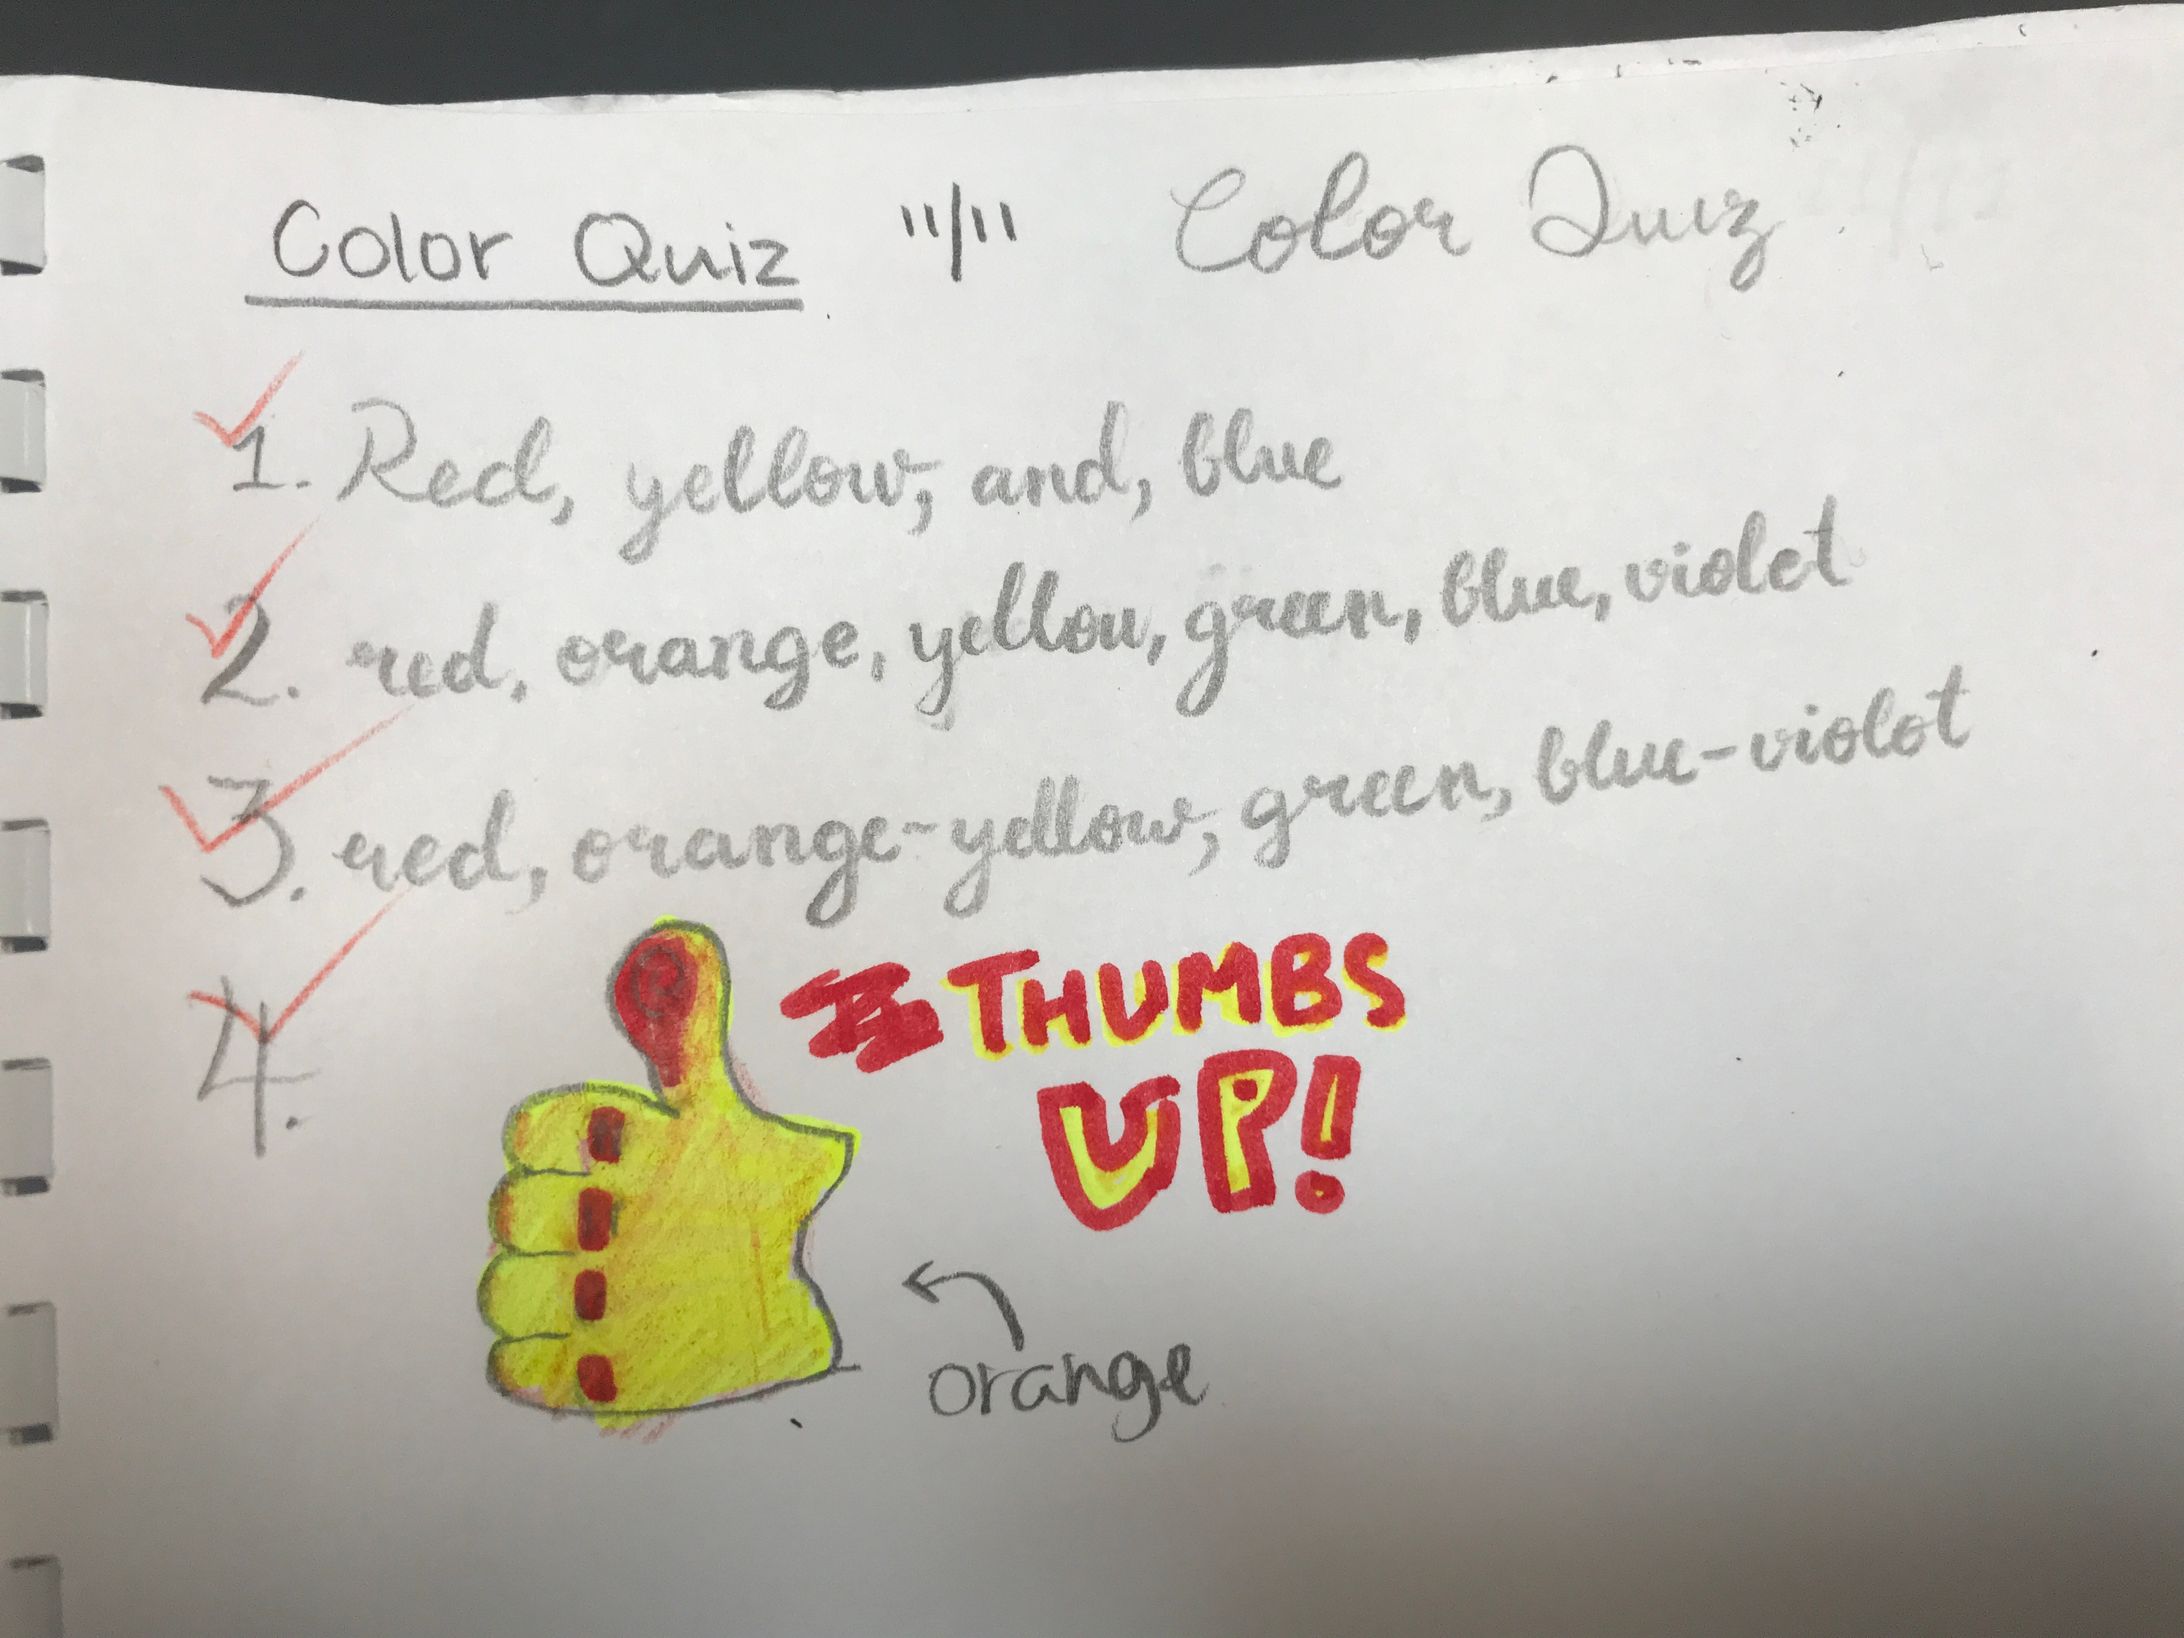 Color Quiz 11/11 Color Quiz
1. Red, yellow, and, blue
2. red, orange, yellow, green, blue, violet
3. red, orange-yellow, green, blue-violot
4.
THUMBS
UP!
orange